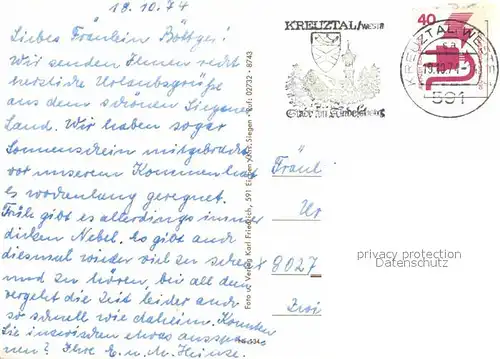 18.10.74
Liebes Fräulein Böttger!
Wir senden Ihnen recht
herzliche Urlaubsgrüße
aus dem schönen Siegener
Land. Wir haben sogar
Sonnenschein mitgebracht
vor unserem Kommen hat
es wochenlang geregnet.
Früh gibt es allerdings immer
dicken Nebel. Es gibt auch
diesmal wieder viel zu sehen
und zu hören, bei all dem
vergeht die Zeit leider auch
so schnell wie daheim. Konnten
Sie inzwischen etwas ausspannen?
Ihre E. u. M. Heinze.
Foto u. Verlag Karl Friedrich, 591 Siegen · Rufs 02732 · 8743
KREUZTAL/WESTF
40
KREUZTAL, WESTF
19.10.74
591
Fräul
8027
privacy protection
Datenschutz